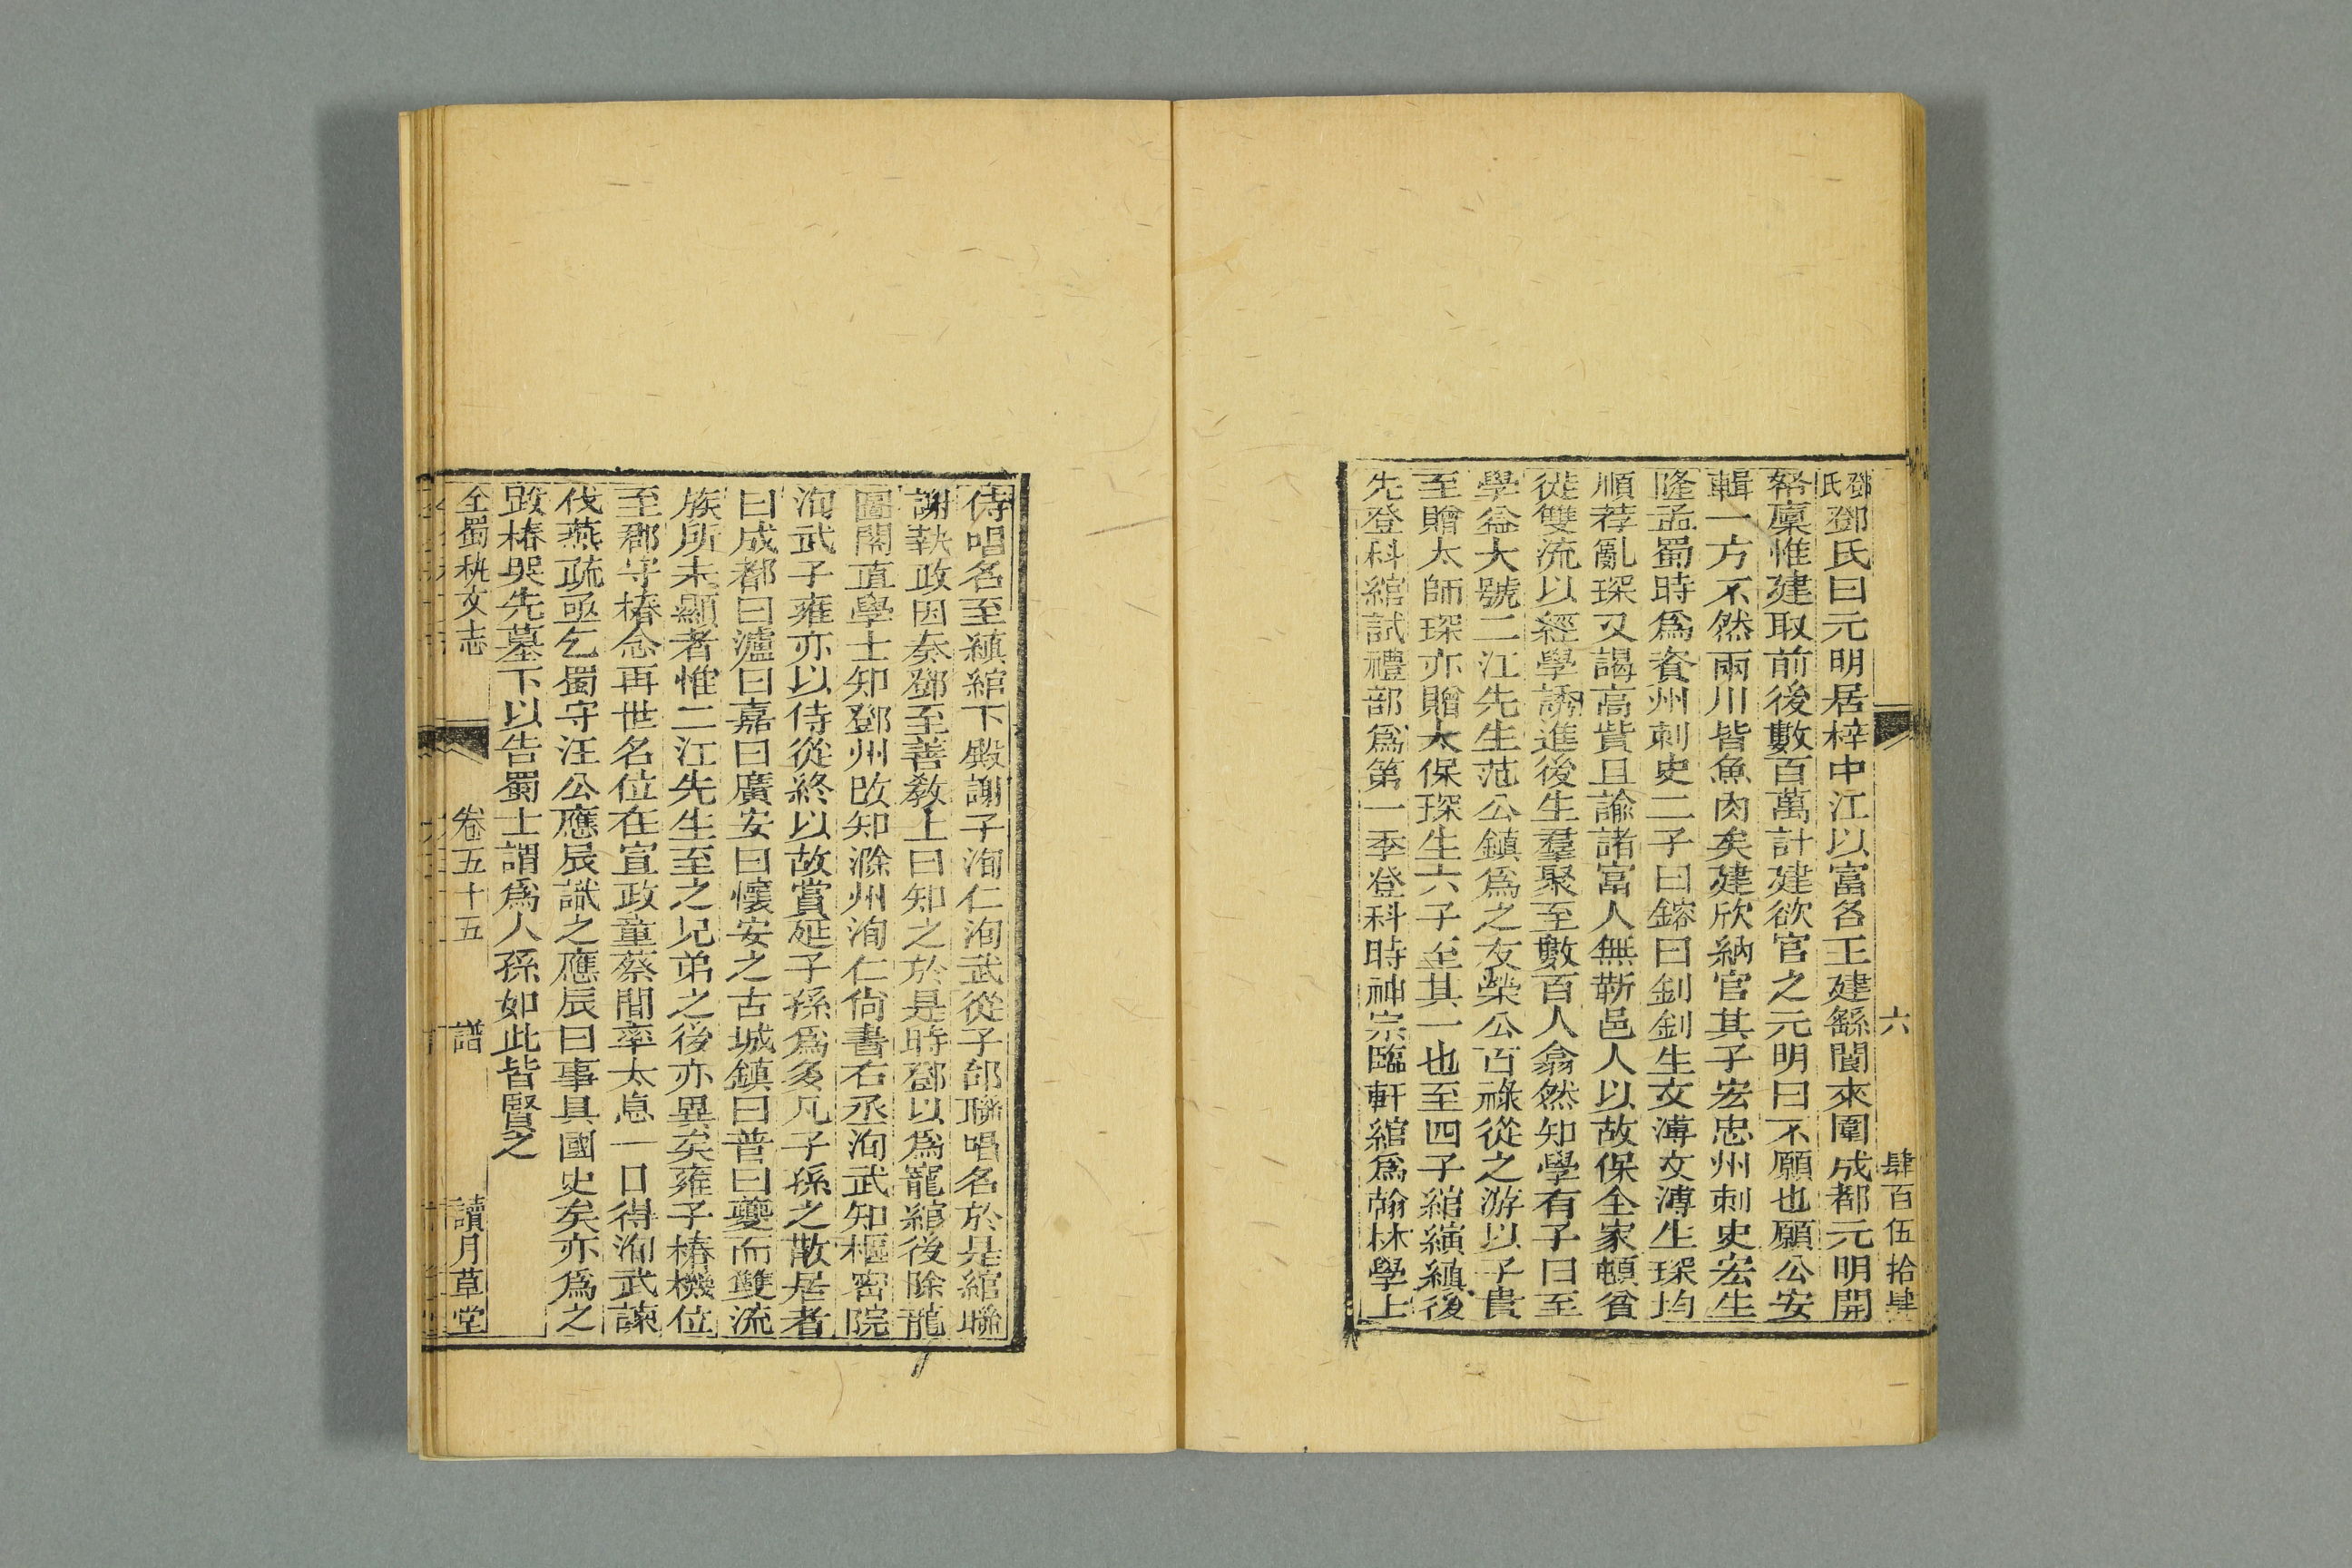 六
肆百伍拾肆
鄧氏鄧氏曰元明居梓中江以富各王建繇閬來圍成都元明開
帑廩惟建取前後數百萬計建欲官之元明曰不願也願公安
輯一方不然兩川皆魚肉矣建欣納官其子宏忠州刺史宏生
隆孟蜀時爲資州刺史二子曰鎔曰釗釗生文溥文溥生琛均
順荐亂琛又謁高貲且諭諸富人無靳邑人以故保全家頓貧
從雙流以經學誘進後生羣聚至數百人翕然知學有子曰至
學益大號二江先生范公鎮爲之友榮公百祿從之游以子貴
至贈太師琛亦贈太保琛生六子至其一也至四子綰績縝後
先登科綰試禮部爲第一季登科時神宗臨軒綰爲翰林學上
侍唱名至縝綰下殿謝子洵仁洵武從子郃聯唱名於是綰聯
謝執政因奏鄧至善教上曰知之於是時鄧以爲寵綰後除龍
圖閣直學士知鄧州改知滁州洵仁尙書右丞洵武知樞密院
洵武子雍亦以侍從終以故賞延子孫爲多凡子孫之散居者
曰成都曰瀘曰嘉曰廣安曰懷安之古城鎮曰普曰夔而雙流
族所未顯者惟二江先生至之兄弟之後亦異矣雍子椿機位
至郡守椿念再世名位在宣政童蔡間率太息一日得洵武諫
伐燕疏亟乞蜀守汪公應辰識之應辰曰事具國史矣亦爲之
跋椿哭先墓下以告蜀士謂爲人孫如此皆賢之
全蜀秇文志
卷五十五
譜
讀月草堂